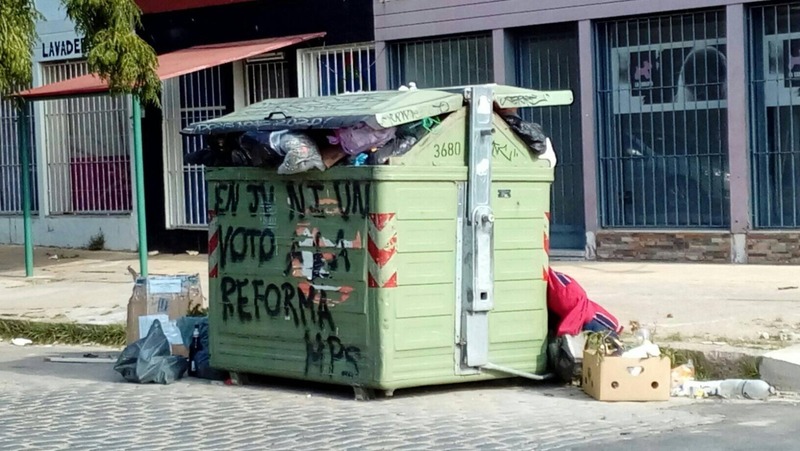 LAVADE
3680
EN JV NI UN
VOTO A LA
REFORMA
MPS